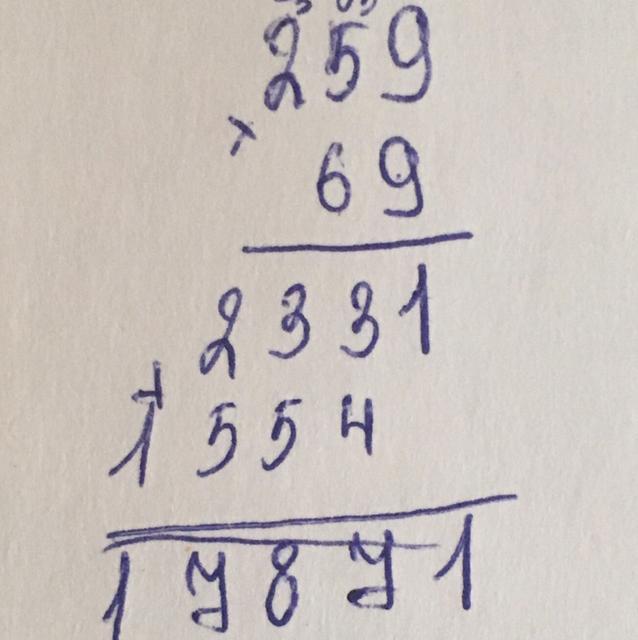 259
× 69
2331
+
1554
17871